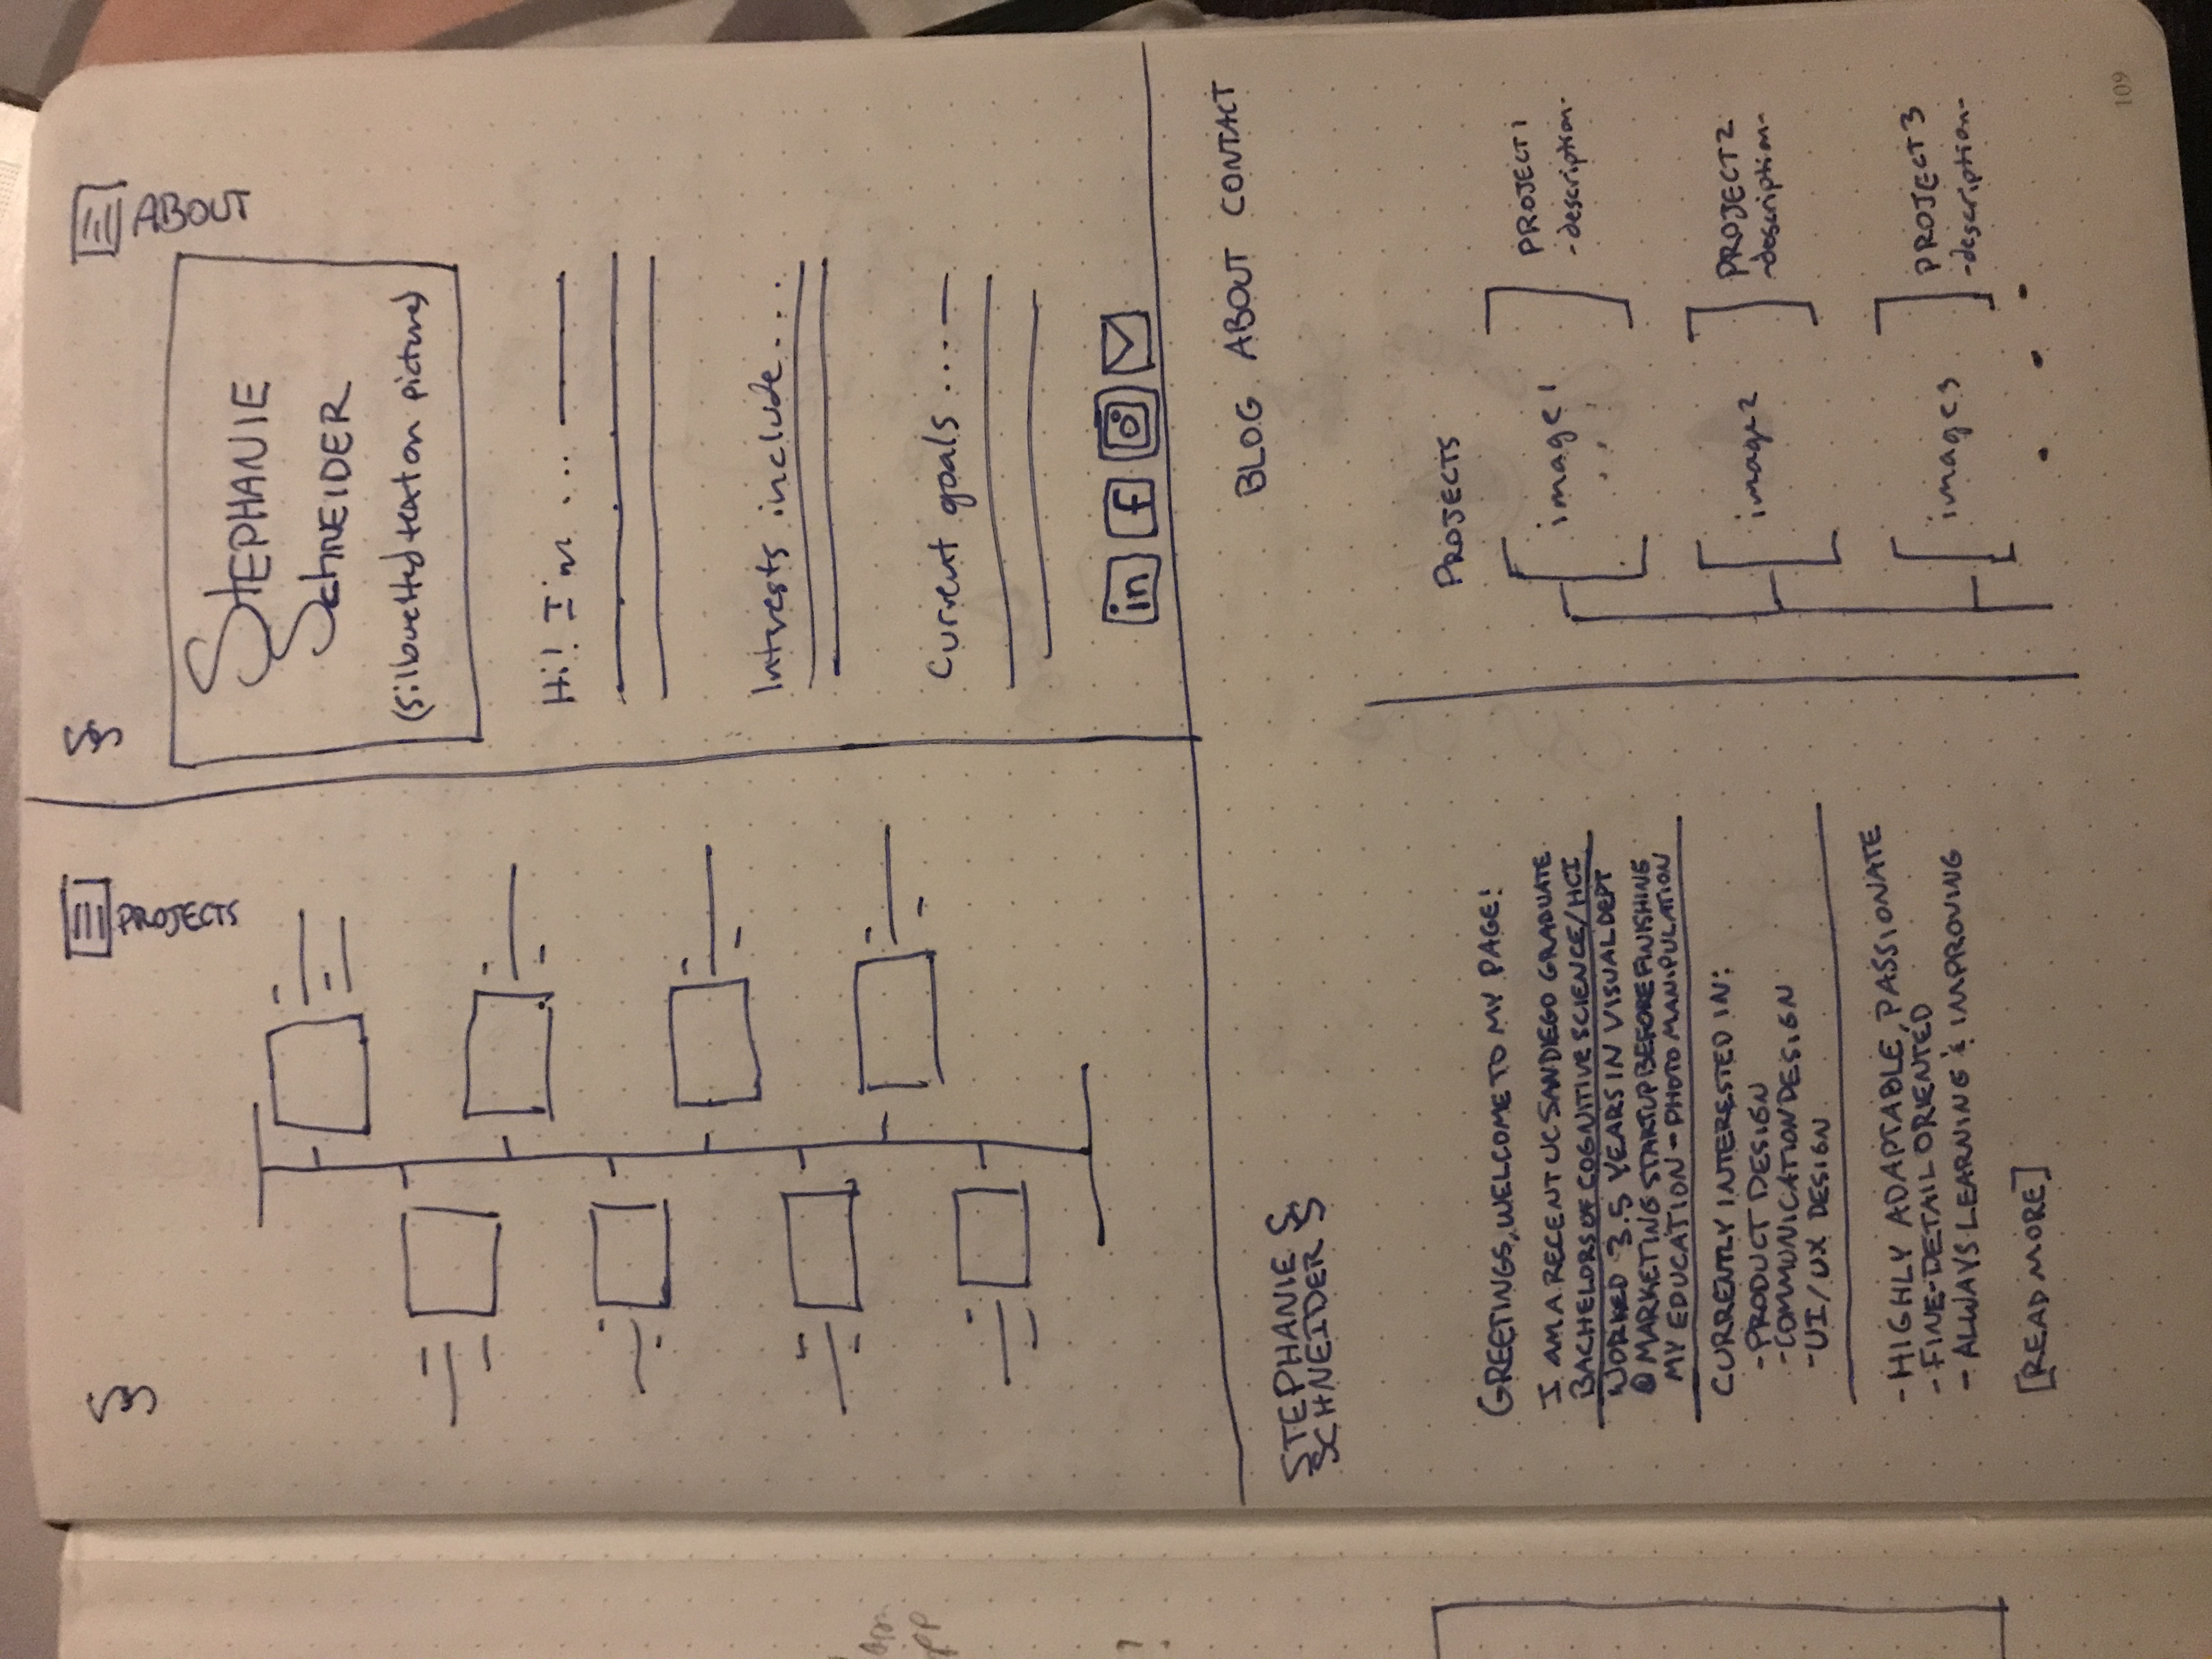 SS
PROJECTS
SS
ABOUT
STEPHANIE
SCHNEIDER
(silhouetted text on picture)
Hi! I'm ...
Interests include...
Current goals ...
in f
BLOG ABOUT CONTACT
STEPHANIE S
SCHNEIDER S
GREETINGS, WELCOME TO MY PAGE!
I AM A RECENT UC SAN DIEGO GRADUATE
BACHELORS OF COGNITIVE SCIENCE/HCI
WORKED 3.5 YEARS IN VISUAL DEPT
@ MARKETING STARTUP BEFORE FINISHING
MY EDUCATION - PHOTO MANIPULATION
CURRENTLY INTERESTED IN:
-PRODUCT DESIGN
-COMMUNICATION DESIGN
-UI/UX DESIGN
-HIGHLY ADAPTABLE, PASSIONATE
-FINE-DETAIL ORIENTED
-ALWAYS LEARNING & IMPROVING
[READ MORE]
PROJECTS
image1
PROJECT1
-description-
image2
PROJECT2
-description-
image3
PROJECT3
-description-
109